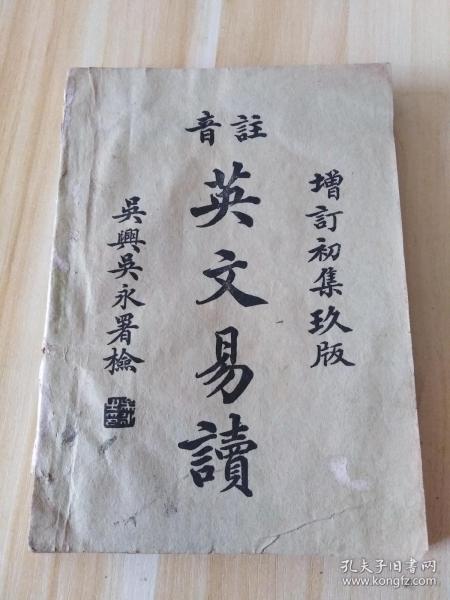 增訂初集玖版
註音
英文易讀
吳興吳永署檢
孔夫子旧书网
www.kongfz.com